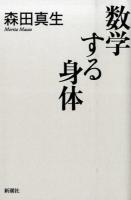 数学
する
身体
森田真生
Morita Masao
新潮社